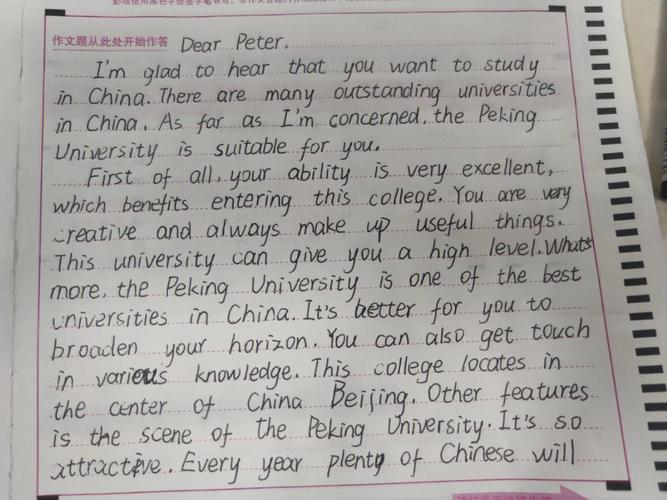 作文题从此处开始作答 Dear Peter,
I'm glad to hear that you want to study
in China. There are many outstanding universities
in China. As far as I'm concerned, the Peking
University is suitable for you.
First of all, your ability is very excellent,
which benefits entering this college. You are very
creative and always make up useful things.
This university can give you a high level. What's
more, the Peking University is one of the best
universities in China. It's better for you to
broaden your horizon. You can also get touch
in various knowledge. This college locates in
the center of China Beijing. Other features
is the scene of the Peking University. It's so
attractive. Every year plenty of Chinese will